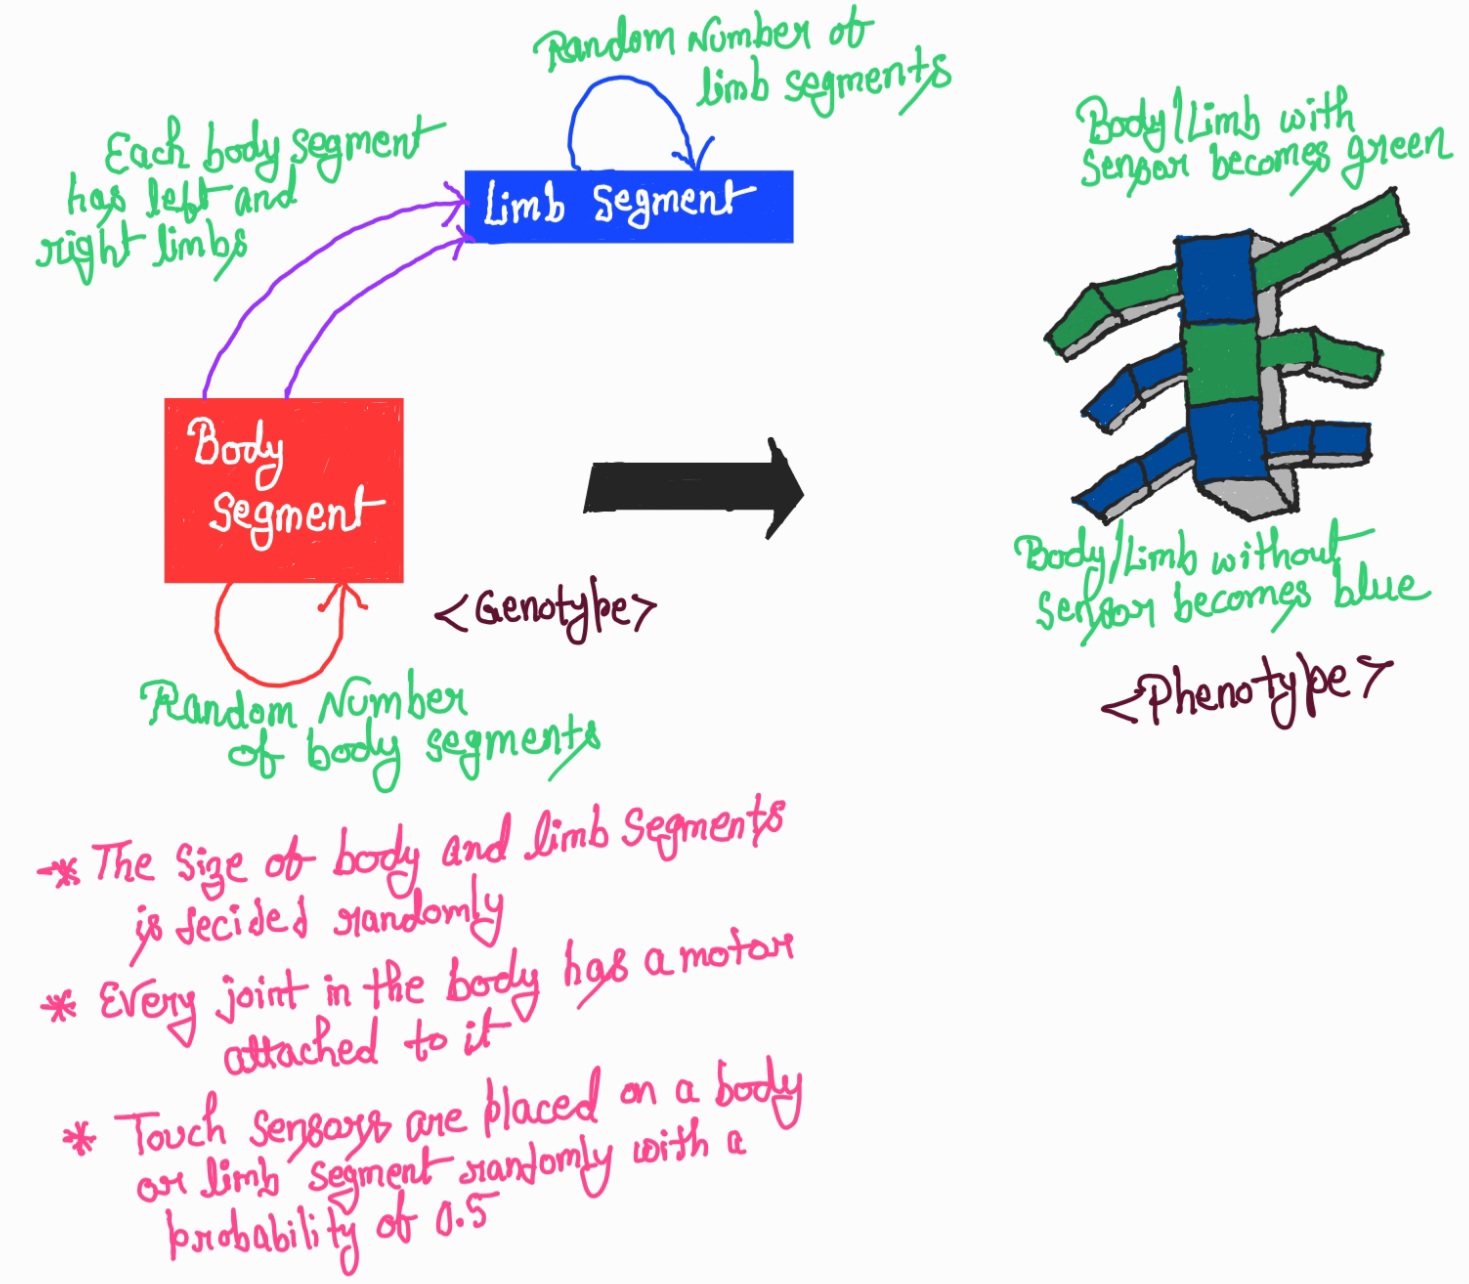 Random Number of
limb segments
Each body segment
has left and
right limbs
Limb Segment
Body/Limb with
Sensor becomes green
Body
Segment
<Genotype>
Random Number
of body segments
Body/Limb without
Sensor becomes blue
<Phenotype>
* The Size of body and limb Segments
is decided randomly
* Every joint in the body has a motor
attached to it
* Touch Sensors are placed on a body
or limb segment randomly with a
probability of 0.5